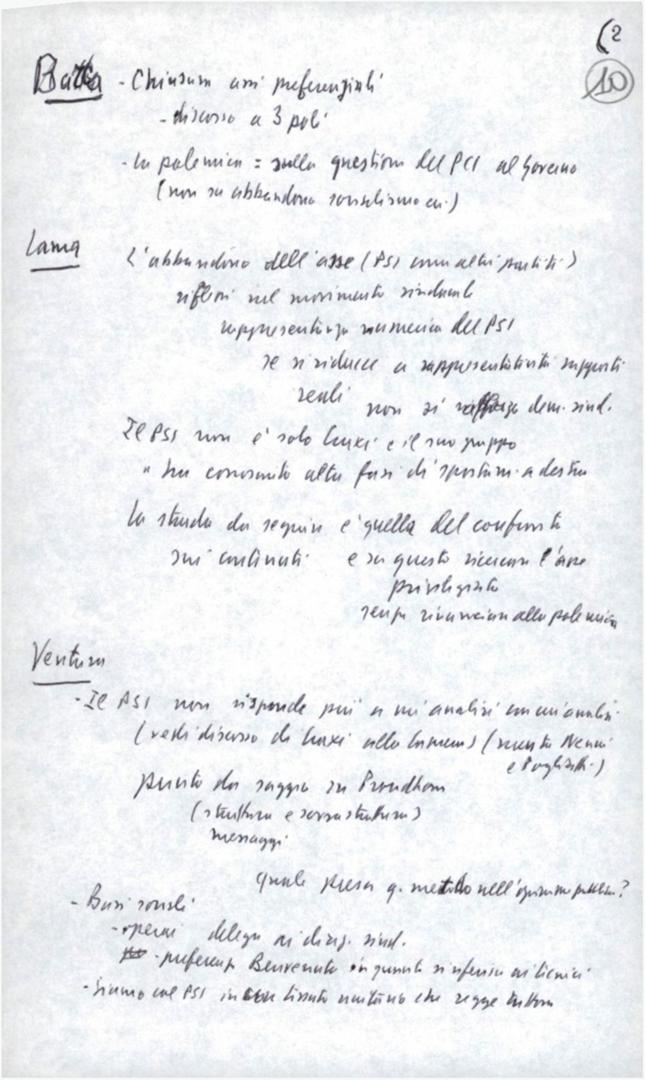 (2
10
Batta - Chiusura assi preferenziali
- discorso a 3 poli
- la polemica = sulla questione del PCI al Governo
(non su abbandono socialismo ecc.)
Lama
L'abbandono dell'asse (PSI con altri partiti)
riflessi nel movimento sindacale
rappresentanza numerica del PSI
se si riduce a rappresentatività rapporti
reali non si rafforza dem. sind.
Il PSI non è solo Craxi e il suo gruppo
" ha conosciuto altre fasi di spostam. a destra
La strada da seguire è quella del confronto
sui contenuti e su questo ricercare l'asse
privilegiato
senza rinunciare alla polemica
Ventura
- Il PSI non risponde più a un'analisi
(vedi discorso di Craxi alla Camera) (
e
punto del saggio su Proudhon
(struttura e sovrastruttura)
messaggi
quale presa q. metodo nell'opinione pubblica?
- Basi sociali
- operai delega ai dirig. sind.
- preferenza Benvenuto in quanto si riferisce ai tecnici
- Siamo col PSI in un tessuto unitario che regge tuttora